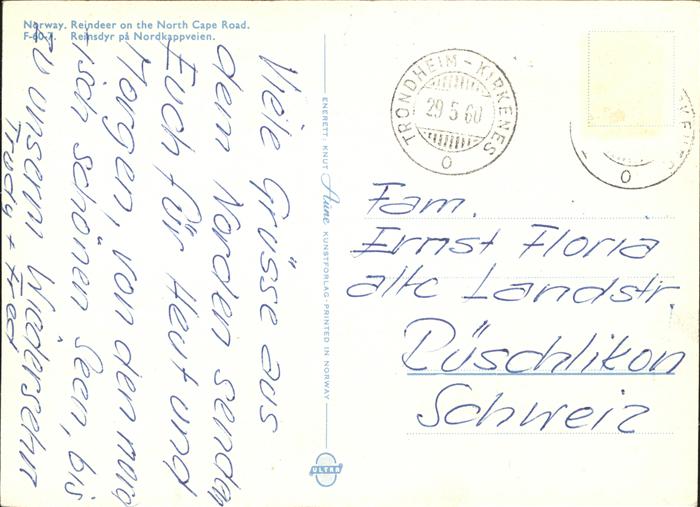 Norway. Reindeer on the North Cape Road.
F-60-7. Reinsdyr på Nordkappveien.
Viele Grüsse aus
dem Norden senden
Euch für Heut und
Morgen, von den
tisch schönen Seen, bis
zu unserm Wiedersehn
Trudy + Fred
ENERETT: KNUT Aune KUNSTFORLAG - PRINTED IN NORWAY
ULTRA
TRONDHEIM - KIRKENES
29 5 60
O
O
Fam.
Ernst Floria
alte Landstr.
Rüschlikon
Schweiz